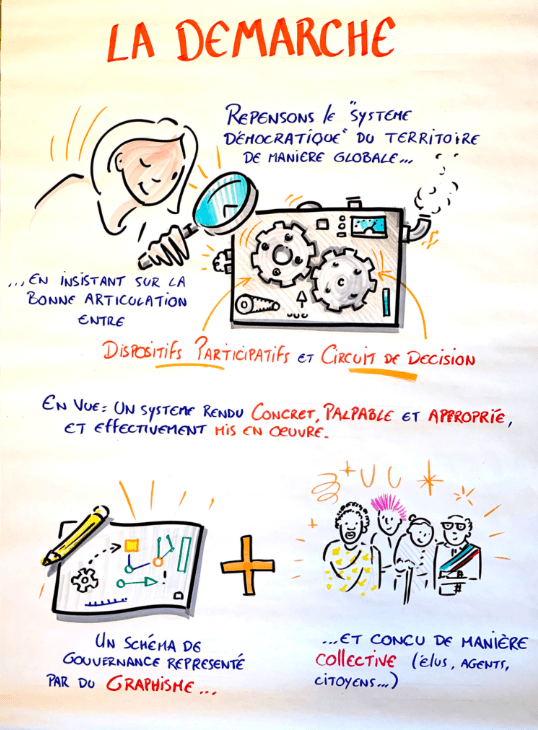 LA DEMARCHE
REPENSONS le "SYSTEME
DÉMOCRATIQUE" DU TERRITOIRE
DE MANIÈRE GLOBALE...
...EN INSISTANT SUR LA
BONNE ARTICULATION
ENTRE
DISPOSITIFS PARTICIPATIFS ET CIRCUIT DE DECISION
EN VUE: UN SYSTEME RENDU CONCRET, PALPABLE ET APPROPRIÉ,
ET EFFECTIVEMENT MIS EN OEUVRE.
UN SCHÉMA DE
GOUVERNANCE REPRESENTÉ
PAR DU GRAPHISME...
...ET CONCU DE MANIÈRE
COLLECTIVE (ÉLUS, AGENTS,
CITOYENS...)